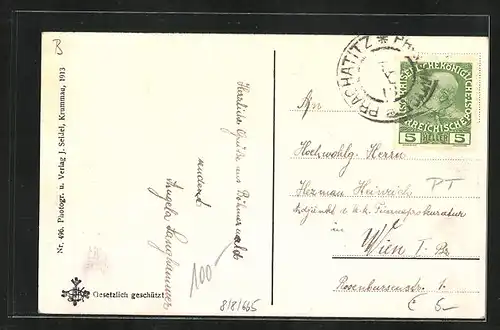 B
Nr. 496. Photogr. u. Verlag J. Seidel, Krummau, 1913
Gesetzlich geschützt
Herzliche Grüße aus Böhmerwalde
sendet
Angela
100-
8/8/465
PRACHATITZ * PRA
KAISERLICHE KÖNIGLICHE
ÖSTERREICHISCHE POST
5 HELLER 5
An
Hochwohlg. Herrn
Herman Heinrich
PT
Adjunkt d. k.k. Finanzprokuratur
in
Wien I. Bz
Rosenbursenstr. 1.
€ 6-